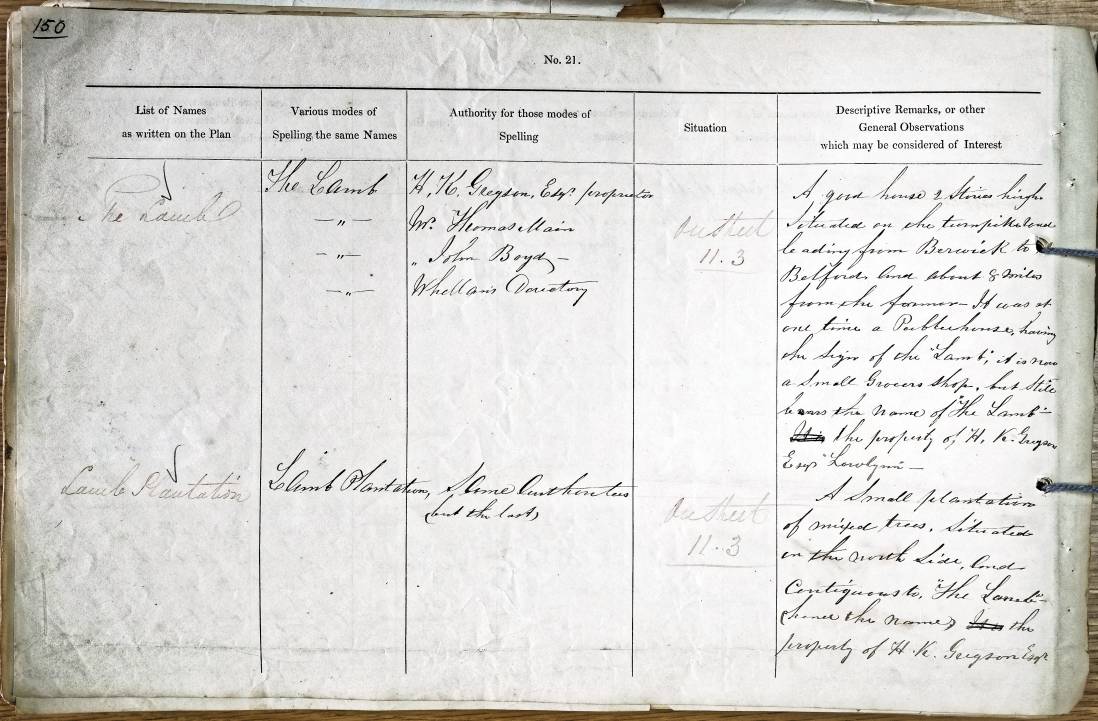 150
No. 21.
List of Names
as written on the Plan
Various modes of
Spelling the same Names
Authority for those modes of
Spelling
Situation
Descriptive Remarks, or other
General Observations
which may be considered of Interest
The Lamb
The Lamb
— „ —
— „ —
— „ —
H. K. Gregson, Esqr. proprietor
Mr. Thomas Main
„ John Boyd —
Whellan's Directory
On Sheet
11.3
A good house 2 Stories high
Situated on the turnpike road
leading from Berwick to
Belford and about 8 miles
from the former — It was at
one time a Publichouse, having
the Sign of the "Lamb", it is now
a Small Grocers shop, but Still
bears the name of "The Lamb" —
It is the property of H. K. Gregson
Esqr Lowlynn —
Lamb Plantation
Lamb Plantation,
Same Authorities
(but the last)
On Sheet
11.3
A Small plantation
of mixed trees, Situated
on the north Side, and
Contiguous to, "The Lamb" —
(hence the name) It is the
property of H. K. Gregson Esqr